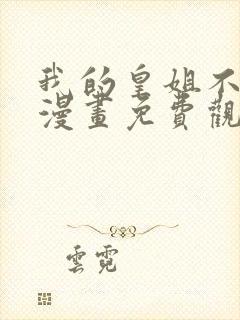 我的皇姐不
漫畫免費觀
雲霓